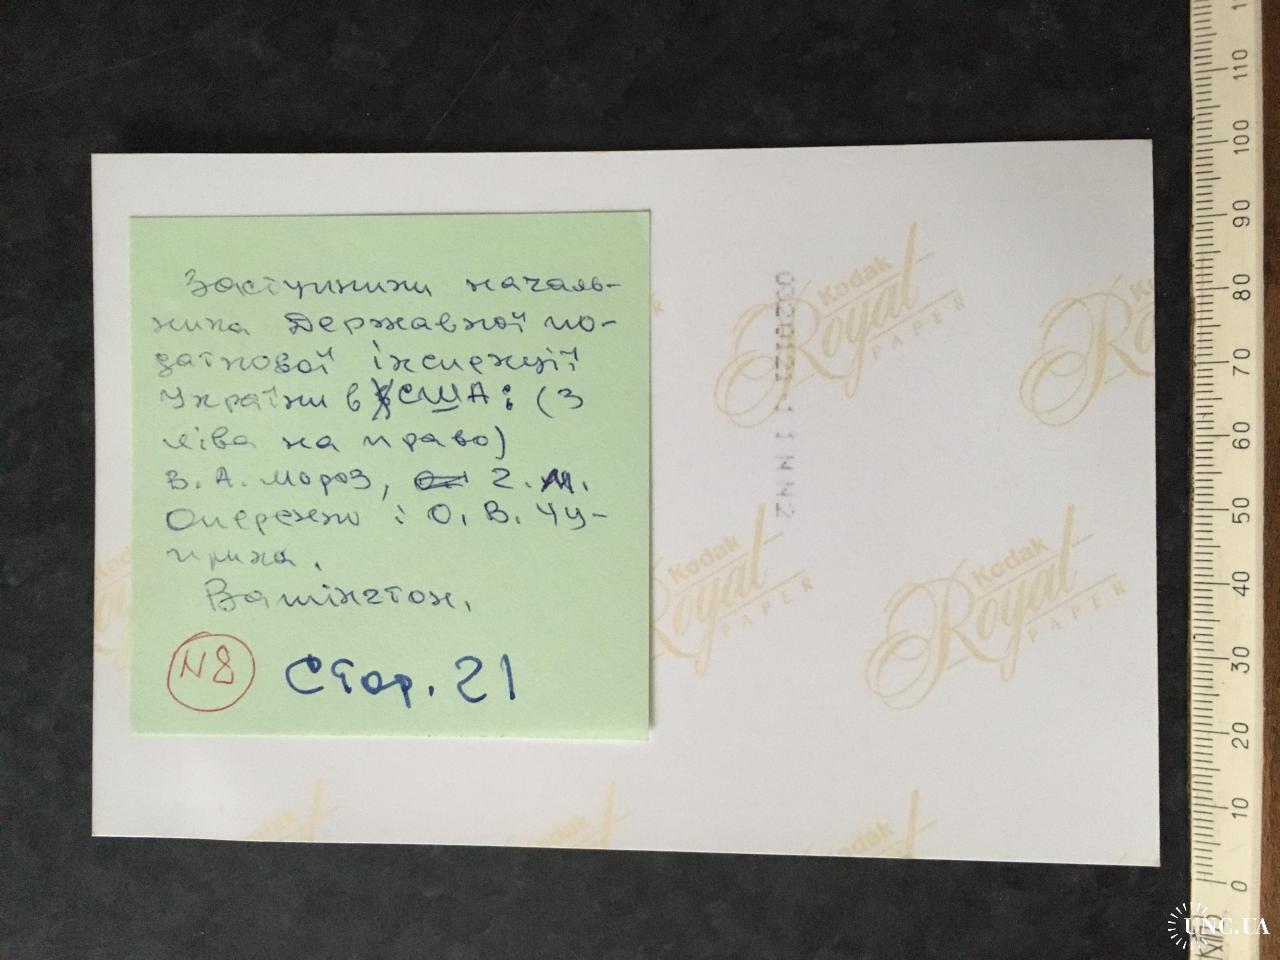 Заступники началь-
ника Державной по-
даткової інспекції
України в США: (з
ліва на право)
В. А. Мороз, Г. М.
Опережно і О. В. Чу-
прина.
Вашінгтон.
N8 Стор. 21
Kodak
Royal
PAPER
Kodak
Royal
PAPER
Kodak
Royal
PAPER
Kodak
Royal
PAPER
Kodak
Kodak
Kodak
110
100
90
80
70
60
50
40
30
20
10
0
UNC.UA